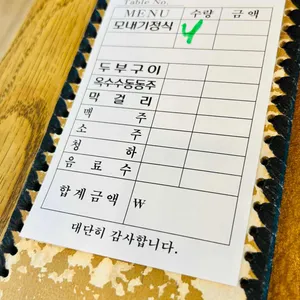 Table No.
MENU 수량 금액
모내기정식 4
두부구이
옥수수동동주
막걸리
맥주
소주
청하
음료수
합계금액 ₩
대단히 감사합니다.